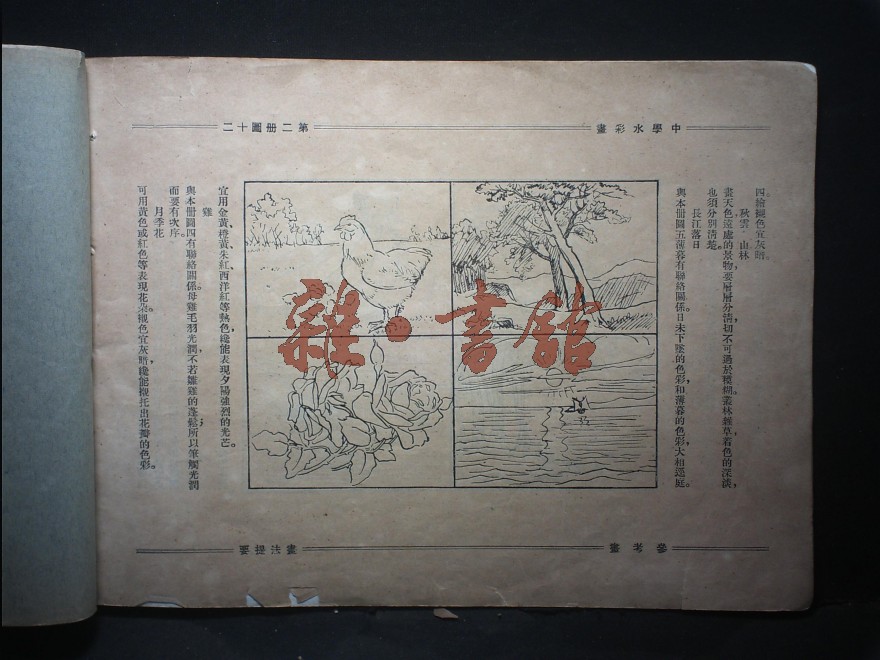 中學水彩畫
第二册圖十二
四。繪襯色宜灰暗。
秋雲·山林
畫天色遠處的景物,要層層分清切不可過於模糊。叢林雜草着色的深淡,
也須分別清楚。
長江落日
與本册圖五薄暮有聯絡關係。日未下墜的色彩,和薄暮的色彩,大相逕庭。
宜用金黃、橙黃、朱紅、西洋紅等熱色,纔能表現夕陽強烈的光芒。
雞
與本册圖四有聯絡關係。母雞毛羽光潤,不若雛雞的蓬鬆;所以筆觸光潤
而要有次序。
月季花
可用黃色或紅色等表現花朵。襯色宜灰暗,纔能襯托出花瓣的色彩。
雜·書館
參考畫
畫法提要